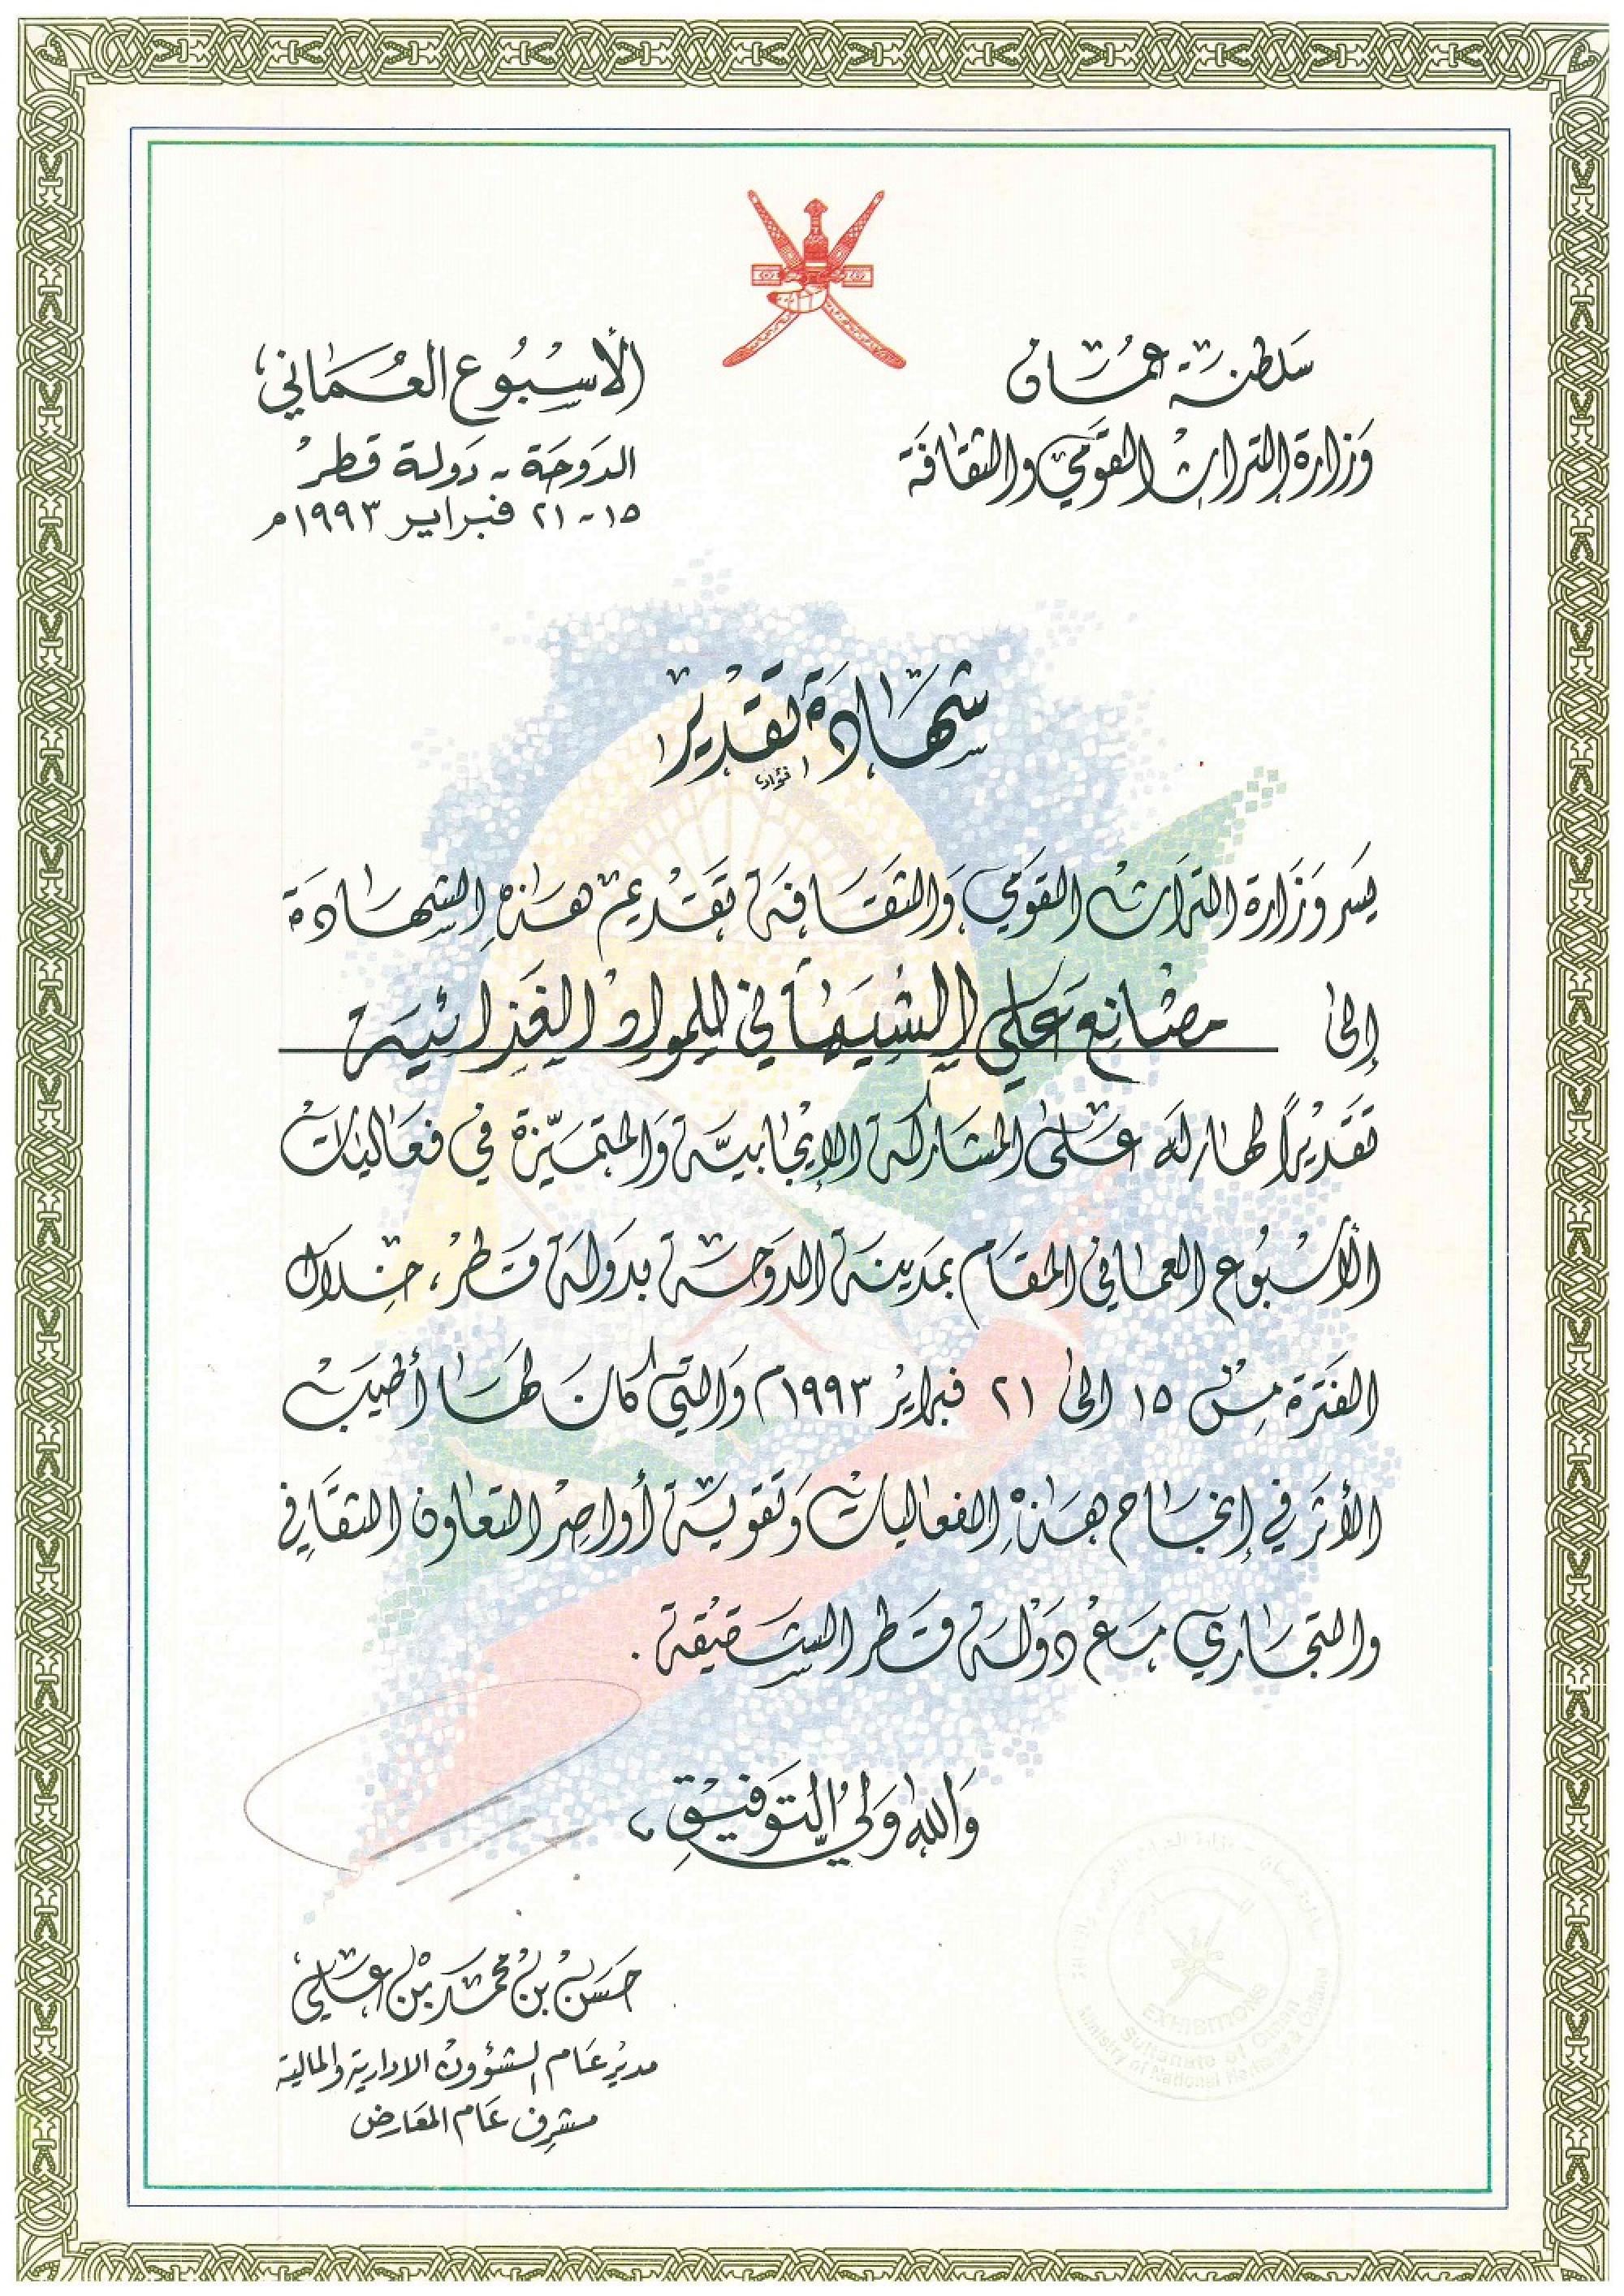 سلطنة عُمان
وزارة التراث القومي والثقافة
الأسبوع العُماني
الدوحة - دولة قطر
١٥ - ٢١ فبراير ١٩٩٣م
شهادة تقدير
يسر وزارة التراث القومي والثقافة تقديم هذه الشهادة
إلى مصانع علي الشيهاني للمواد الغذائية
تقديراً لها له على المشاركة الإيجابية والمتميزة في فعاليات
الأسبوع العماني المقام بمدينة الدوحة بدولة قطر، خلال
الفترة من ١٥ الى ٢١ فبراير ١٩٩٣م والتي كان لها أطيب
الأثر في إنجاح هذه الفعاليات وتقوية أواصر التعاون الثقافي
والتجاري مع دولة قطر الشقيقة .
والله ولي التوفيق ،
حسن بن محمد بن علي
مدير عام الشؤون الادارية والمالية
مشرف عام المعارض
EXHIBITIONS
Sultanate of Oman
Ministry of National Heritage & Culture